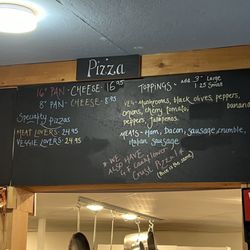 Pizza
16" PAN - CHEESE - 16.95
8" PAN - CHEESE - 8.95
Specialty Pizzas
MEAT LOVERS - 24.95
VEGGIE LOVERS - 24.95
TOPPINGS - add .3" Large
1.25 Small
Mushrooms, black olives, peppers, banana
onions, cherry tomato,
peppers, jalapenos.
MEATS - Ham, bacon, sausage, crumble,
Italian Sausage
* WE
ALSO HAVE
G.F. Cauliflower
Crust Pizza! *